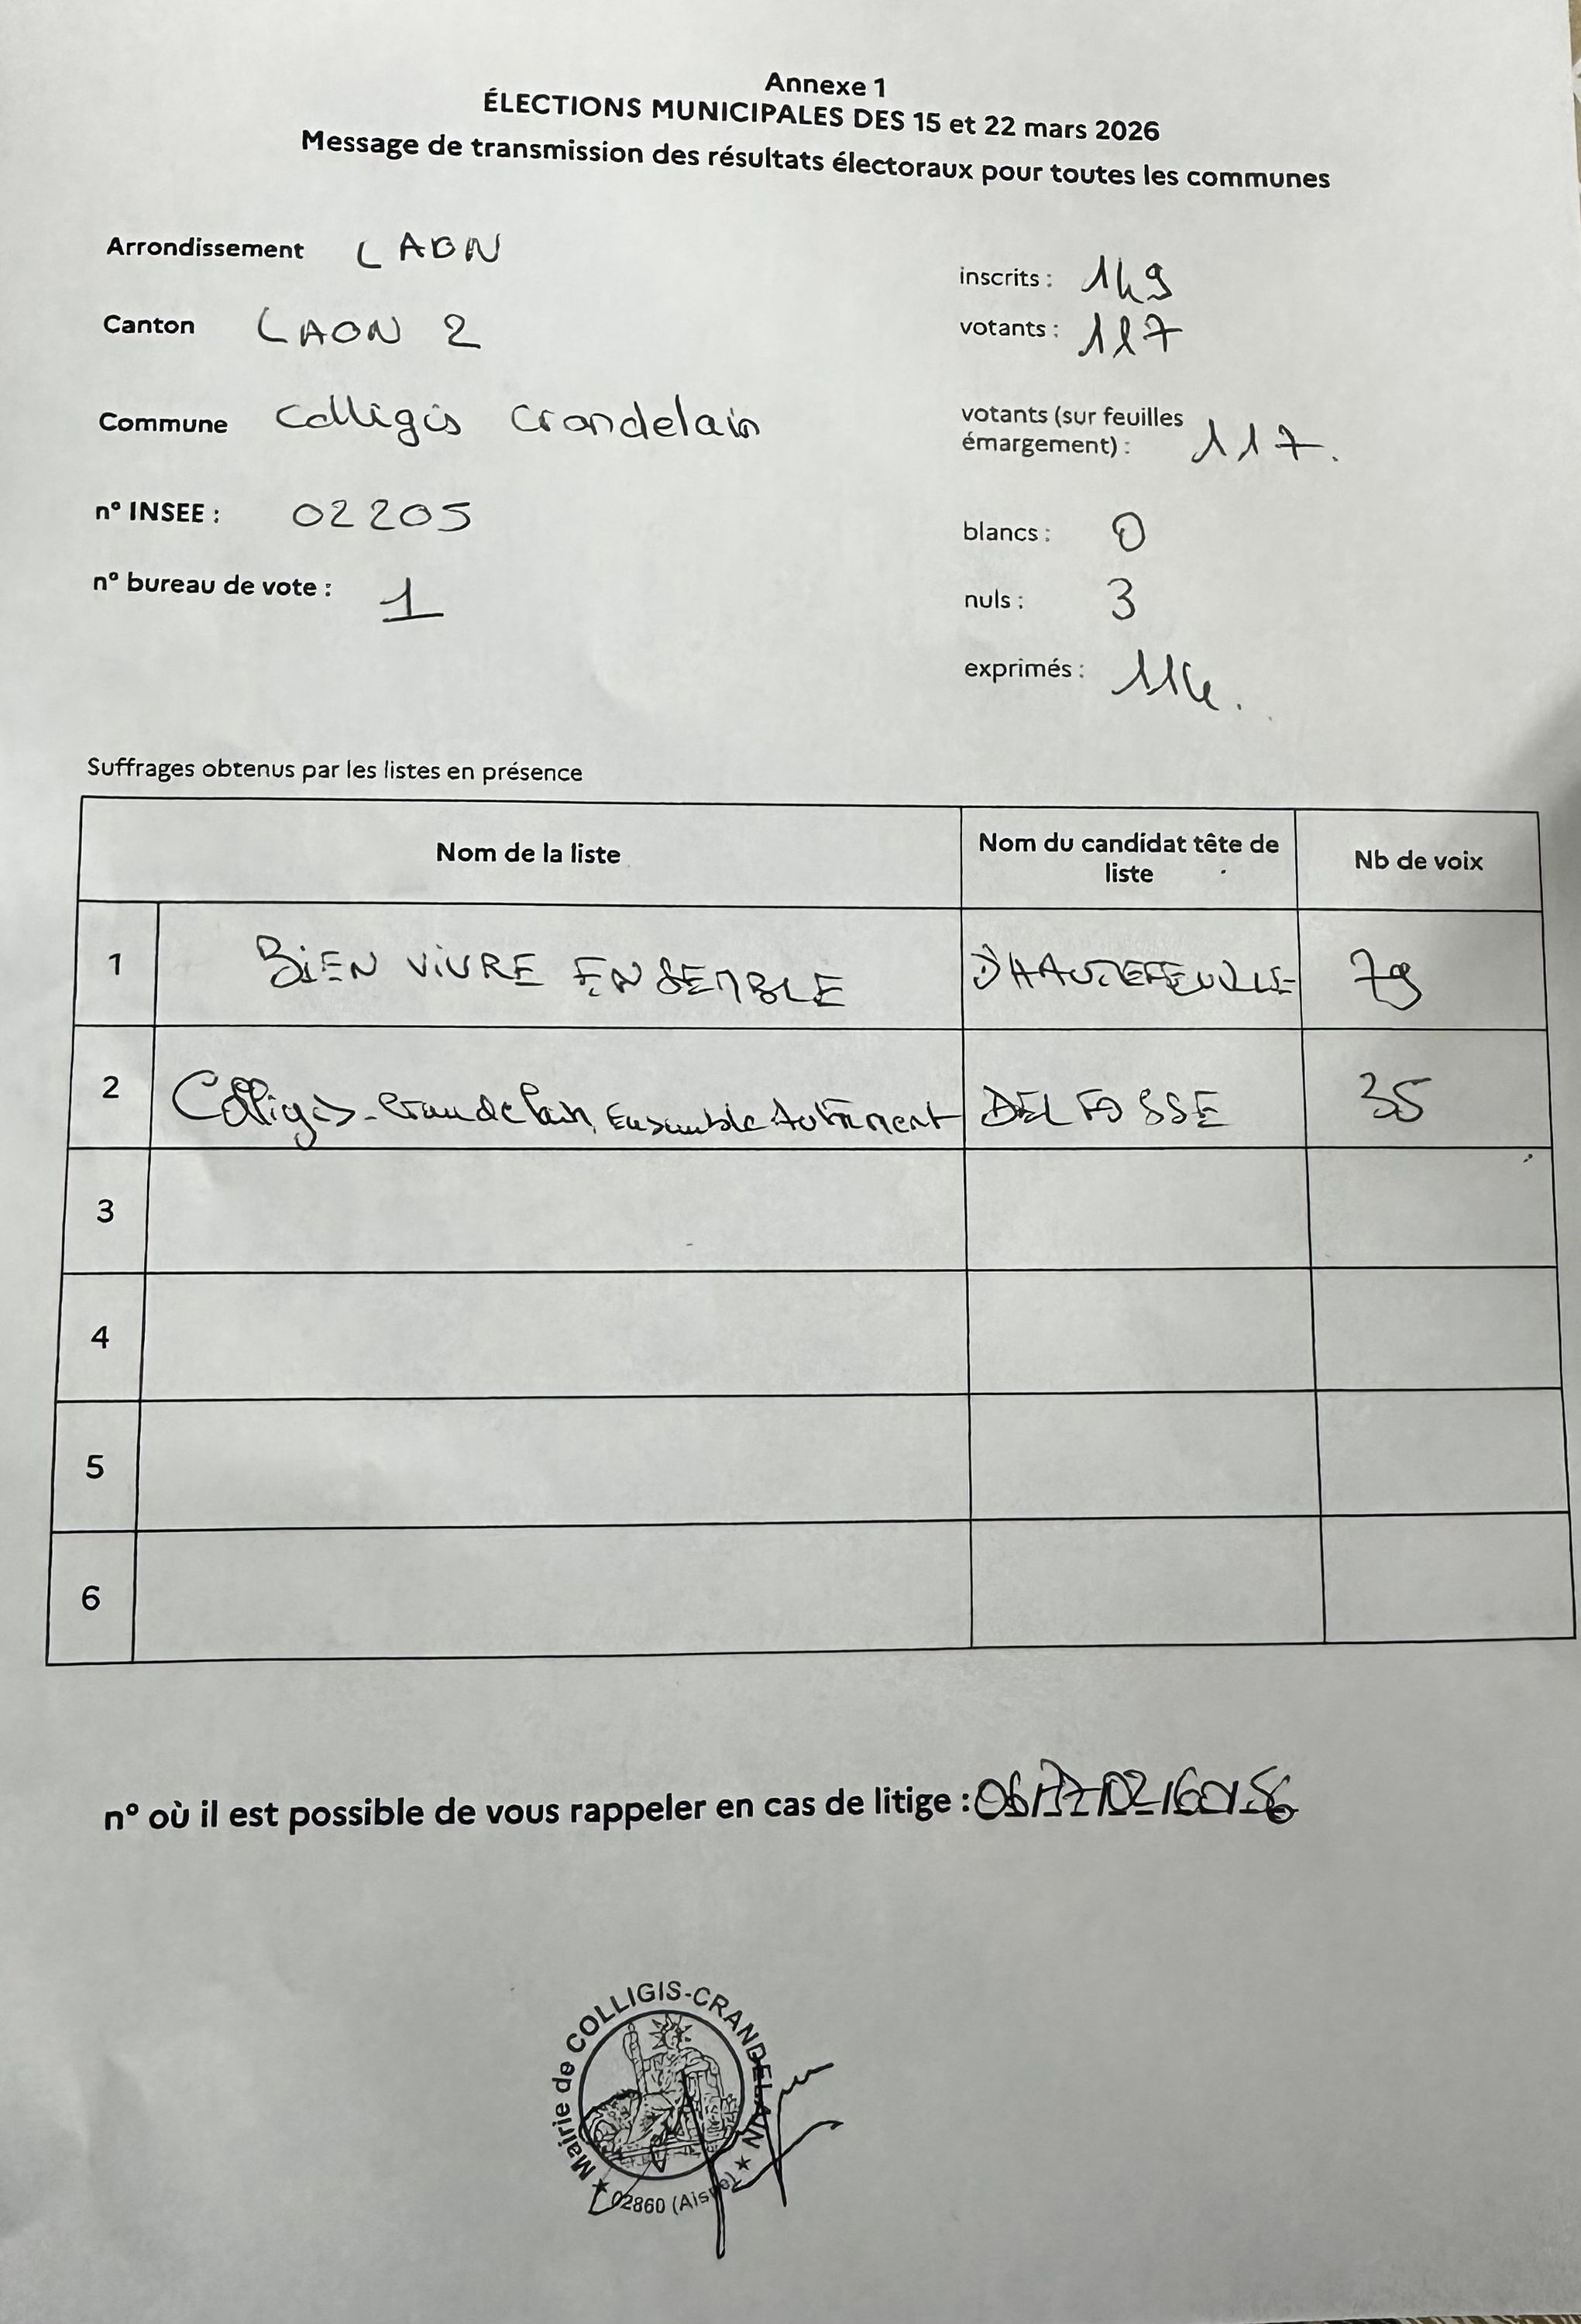 Annexe 1
ÉLECTIONS MUNICIPALES DES 15 et 22 mars 2026
Message de transmission des résultats électoraux pour toutes les communes
Arrondissement LAON
Canton LAON 2
Commune Colligis Crandelain
n° INSEE : 02205
n° bureau de vote : 1
inscrits : 149
votants : 117
votants (sur feuilles
émargement) : 117.
blancs : 0
nuls : 3
exprimés : 114.
Suffrages obtenus par les listes en présence
Nom de la liste Nom du candidat tête de liste Nb de voix
1 BIEN VIVRE ENSEMBLE D'HAUTEFEUILLE 79
2 Colligis-Crandelain, Ensemble Autrement DELFOSSE 35
3
4
5
6
n° où il est possible de vous rappeler en cas de litige :
Mairie de COLLIGIS-CRANDELAIN
02860 (Aisne)